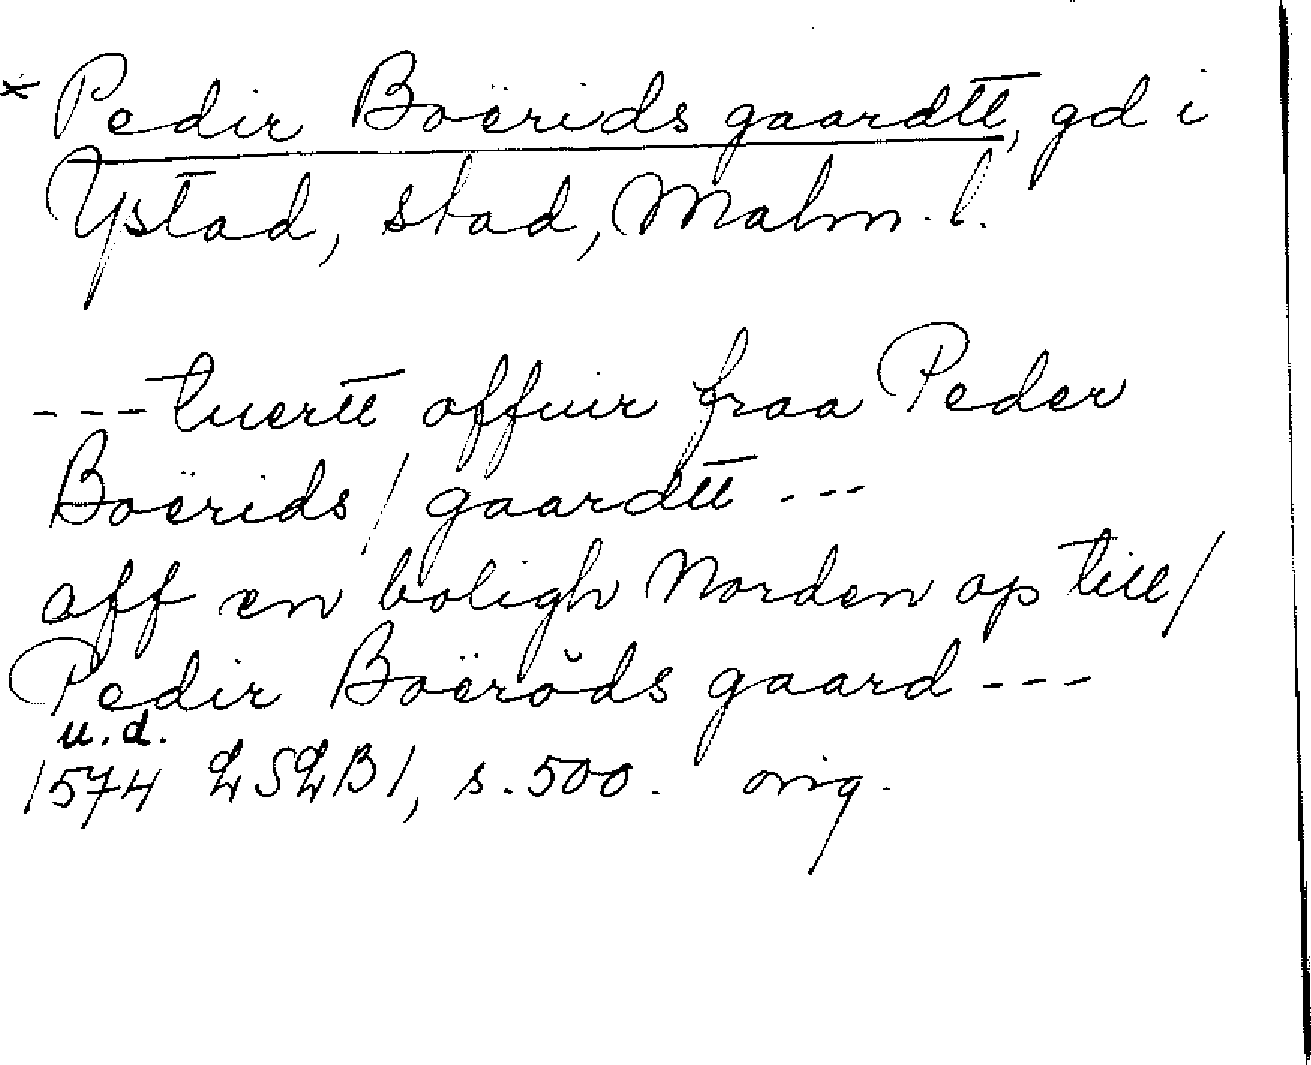 * Pedir Boërids gaardtt, gd i
Ystad, stad, Malm. l.
--- tuertt offuir fraa Peder
Boërids / gaardtt ---
aff en boligh Norden op till /
Pedir Boërŏds gaard ---
u.d.
1574 LSLB 1, s. 500. orig.